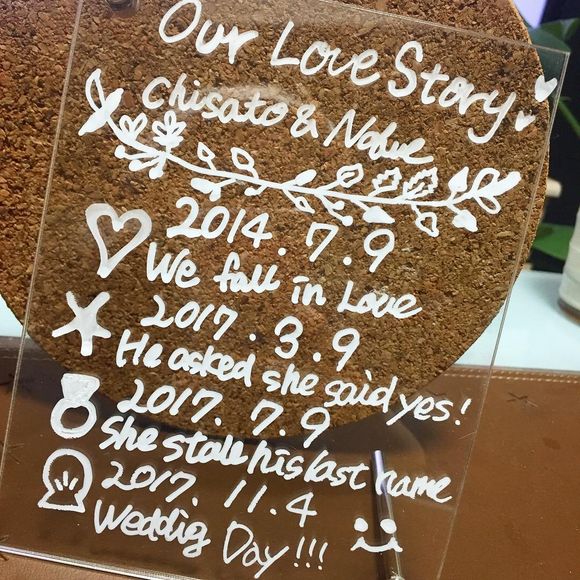 Our Love Story
Chisato & Nobue
2014.7.9
We fall in Love
2017.3.9
He asked she said yes!
2017.7.9
She stole his last name
2017.11.4
Weddig Day!!!